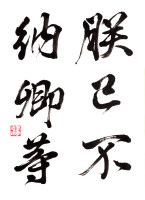 朕已不
納卿等